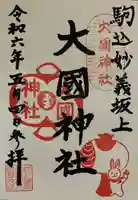 駒込妙義坂上
大國神社
大國神社
神社
令和六年五月 参拝